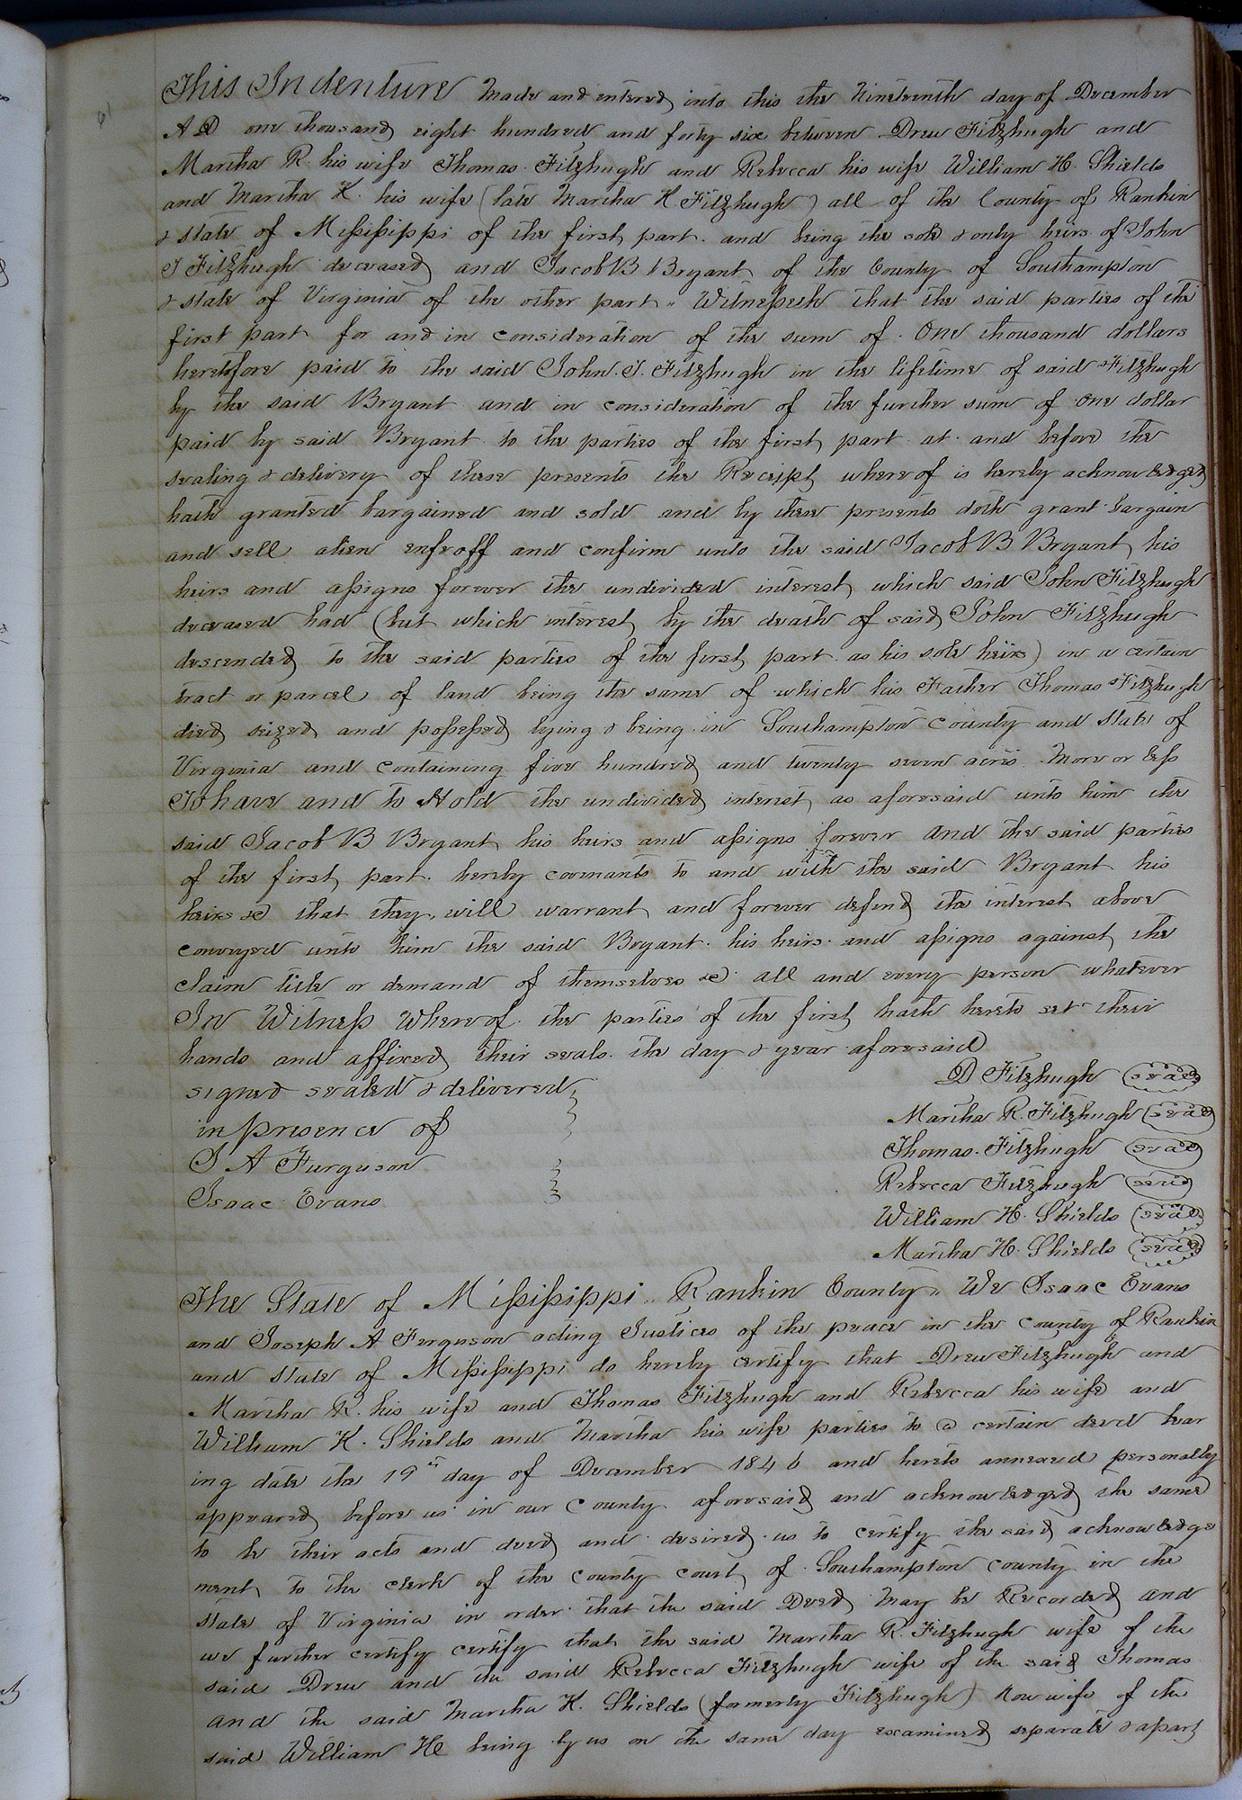 This Indenture Made and entered into this the Nineteenth day of December
A D one thousand eight hundred and forty six between Drew Fitzhugh and
Martha R. his wife Thomas Fitzhugh and Rebecca his wife William H. Shields
and Martha H. his wife (late Martha H Fitzhugh) all of the County of Rankin
& state of Mississippi of the first part. and being the sole & only heirs of John
T Fitzhugh deceased and Jacob B Bryant of the County of Southampton
& state of Virginia of the other part. Witnesseth that the said parties of the
first part for and in consideration of the sum of One thousand dollars
heretofore paid to the said John. T. Fitzhugh in the lifetime of said Fitzhugh
by the said Bryant and in consideration of the further sum of one dollar
paid by said Bryant to the parties of the first part at and before the
sealing & delivery of these presents the Receipt whereof is hereby acknowledged
hath granted bargained and sold and by these presents doth grant bargain
and sell alien enfeoff and confirm unto the said Jacob B Bryant his
heirs and assigns forever the undivided interest which said John Fitzhugh
deceased had (but which interest by the death of said John Fitzhugh
descended to the said parties of the first part as his sole heirs) in a certain
tract or parcel of land being the same of which his Father Thomas Fitzhugh
died seized and possessed lying & being in Southampton county and state of
Virginia and containing five hundred and twenty seven acres More or less
To have and to Hold the undivided interest as aforesaid unto him the
said Jacob B Bryant his heirs and assigns forever and the said parties
of the first part hereby covenants to and with the said Bryant his
heirs &c that they will warrant and forever defend the interest above
conveyed unto him the said Bryant his heirs and assigns against the
claim title or demand of themselves &c all and every person whatever
In Witness Whereof the parties of the first hath hereto set their
hands and affixed their seals the day & year aforesaid
signed sealed & delivered
in presence of
J A Ferguson
Isaac Evans
D Fitzhugh seal
Martha R. Fitzhugh seal
Thomas. Fitzhugh seal
Rebecca Fitzhugh seal
William H. Shields seal
Martha H. Shields seal
The State of Mississippi Rankin County. We Isaac Evans
and Joseph A Ferguson acting Justices of the peace in the county of Rankin
and state of Mississippi do hereby certify that Drew Fitzhugh and
Martha R. his wife and Thomas Fitzhugh and Rebecca his wife and
William H. Shields and Martha his wife parties to a certain deed bear
ing date the 19th day of December 1846 and hereto annexed personally
appeared before us in our County aforesaid and acknowledged the same
to be their acts and deed and desired us to certify the said acknowledge
ment to the clerk of the county court of Southampton county in the
state of Virginia in order that the said Deed May be Recorded and
we further certify certify that the said Martha R. Fitzhugh wife of the
said Drew and the said Rebecca Fitzhugh wife of the said Thomas
and the said Martha H. Shields (formerly Fitzhugh) now wife of the
said William H being by us on the same day examined separate & apart